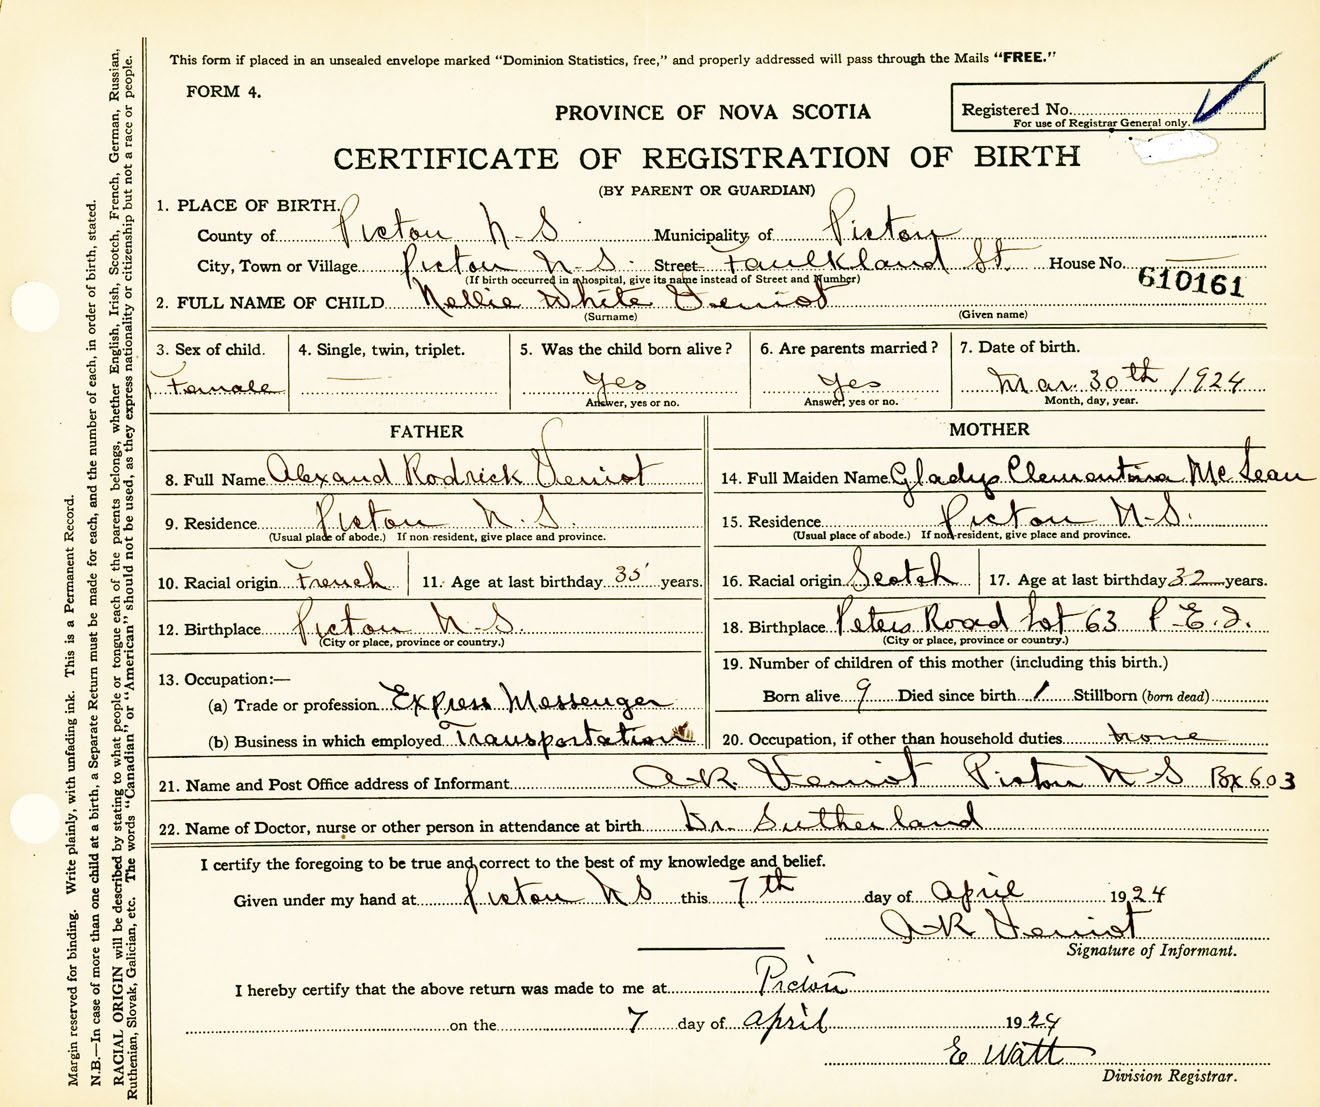 This form if placed in an unsealed envelope marked "Dominion Statistics, free," and properly addressed will pass through the Mails "FREE."
FORM 4.
PROVINCE OF NOVA SCOTIA
Registered No.
For use of Registrar General only.
CERTIFICATE OF REGISTRATION OF BIRTH
(BY PARENT OR GUARDIAN)
1. PLACE OF BIRTH.
County of Pictou N-S Municipality of Pictou
City, Town or Village Pictou N-S. Street Faulkland St. House No. —
(If birth occurred in a hospital, give its name instead of Street and Number)
610161
2. FULL NAME OF CHILD Nellie White Veniot
(Surname) (Given name)
3. Sex of child. 4. Single, twin, triplet. 5. Was the child born alive? 6. Are parents married? 7. Date of birth.
Female — Yes Yes Mar. 30th 1924
Answer, yes or no. Answer, yes or no. Month, day, year.
FATHER MOTHER
8. Full Name Alexand Rodrick Veniot 14. Full Maiden Name Gladys Clementina McLean
9. Residence Pictou N.S. 15. Residence Pictou N-S.
(Usual place of abode.) If non-resident, give place and province. (Usual place of abode.) If non-resident, give place and province.
10. Racial origin French 11. Age at last birthday 35 years. 16. Racial origin Scotch 17. Age at last birthday 32 years.
12. Birthplace Pictou N.S. 18. Birthplace Peters Road Lot 63 P-E.I.
(City or place, province or country.) (City or place, province or country.)
13. Occupation:— 19. Number of children of this mother (including this birth.)
(a) Trade or profession Express Messenger Born alive 9 Died since birth 1 Stillborn (born dead)
(b) Business in which employed Transportation 20. Occupation, if other than household duties none
21. Name and Post Office address of Informant A-R. Veniot Pictou N-S Box 603
22. Name of Doctor, nurse or other person in attendance at birth Dr. Sutherland
I certify the foregoing to be true and correct to the best of my knowledge and belief.
Given under my hand at Pictou NS this 7th day of April 1924
A-R Veniot
Signature of Informant.
I hereby certify that the above return was made to me at Pictou
on the 7 day of April 1924
E Watt
Division Registrar.
Margin reserved for binding. Write plainly, with unfading ink. This is a Permanent Record.
N.B.—In case of more than one child at a birth, a Separate Return must be made for each, and the number of each, in order of birth, stated.
RACIAL ORIGIN will be described by stating to what people or tongue each of the parents belongs, whether English, Irish, Scotch, French, German, Russian,
Ruthenian, Slovak, Galician, etc. The words "Canadian" or "American" should not be used, as they express nationality or citizenship but not a race or people.